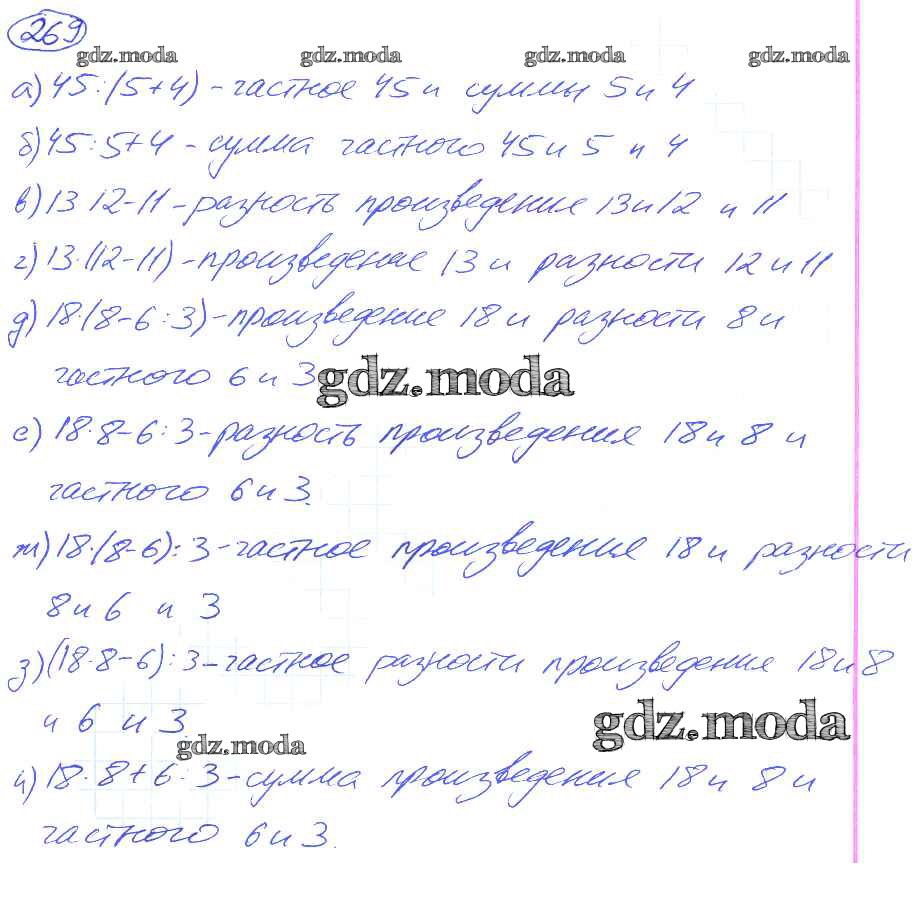 269
gdz.moda gdz.moda gdz.moda gdz.moda
а) 45:(5+4) - частное 45 и суммы 5 и 4
б) 45:5+4 - сумма частного 45 и 5 и 4
в) 13 12-11 - разность произведения 13 и 12 и 11
г) 13·(12-11) - произведение 13 и разности 12 и 11
д) 18·(8-6:3) - произведение 18 и разности 8 и
частного 6 и 3
gdz.moda
е) 18·8-6:3 - разность произведения 18 и 8 и
частного 6 и 3.
ж) 18·(8-6):3 - частное произведения 18 и разности
8 и 6 и 3
з) (18·8-6):3 - частное разности произведения 18 и 8
и 6 и 3
gdz.moda
gdz.moda
и) 18·8+6:3 - сумма произведения 18 и 8 и
частного 6 и 3.